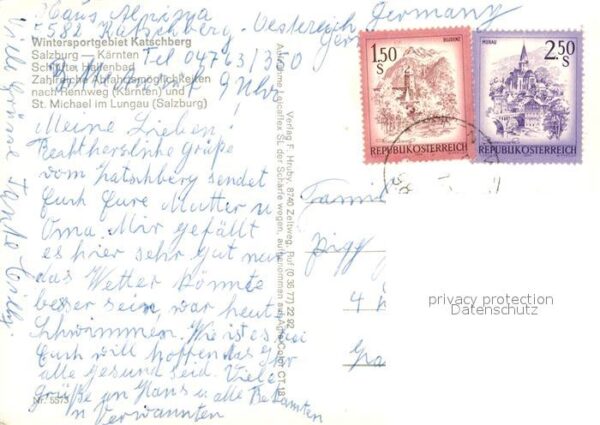 Haus Alpina
582 Katschberg - Oesterreich Germany
Tel 04763/
9 Uhr
Wintersportgebiet Katschberg
Salzburg — Kärnten
Schilifte, Hallenbad
Zahlreiche Abfahrtsmöglichkeiten
nach Rennweg (Kärnten) und
St. Michael im Lungau (Salzburg)
Meine Lieben!
Recht herzliche Grüße
vom Katschberg sendet
Euch Eure Mutter u
Oma. Mir gefällt
es hier sehr gut nur
das Wetter könnte
besser sein, war heut
schwimmen. Wie ist es bei
Euch will hoffen das Ihr
alle gesund seid. Viele
Grüße an Hans u alle Bekannten
u Verwannten
Viele Grüsse Tante Cilly
Nr. 5573
Verlag F. Hruby, 8740 Zeltweg, Ruf (0 35 77) 22 92
Aufnahme Locaflex SL der Schärfe wegen, aufgenommen auf Agfa-Color CT 18
1.50
S
BLUDENZ
REPUBLIK ÖSTERREICH
MURAU
2.50
S
REPUBLIK ÖSTERREICH
Famil
4
privacy protection
Datenschutz